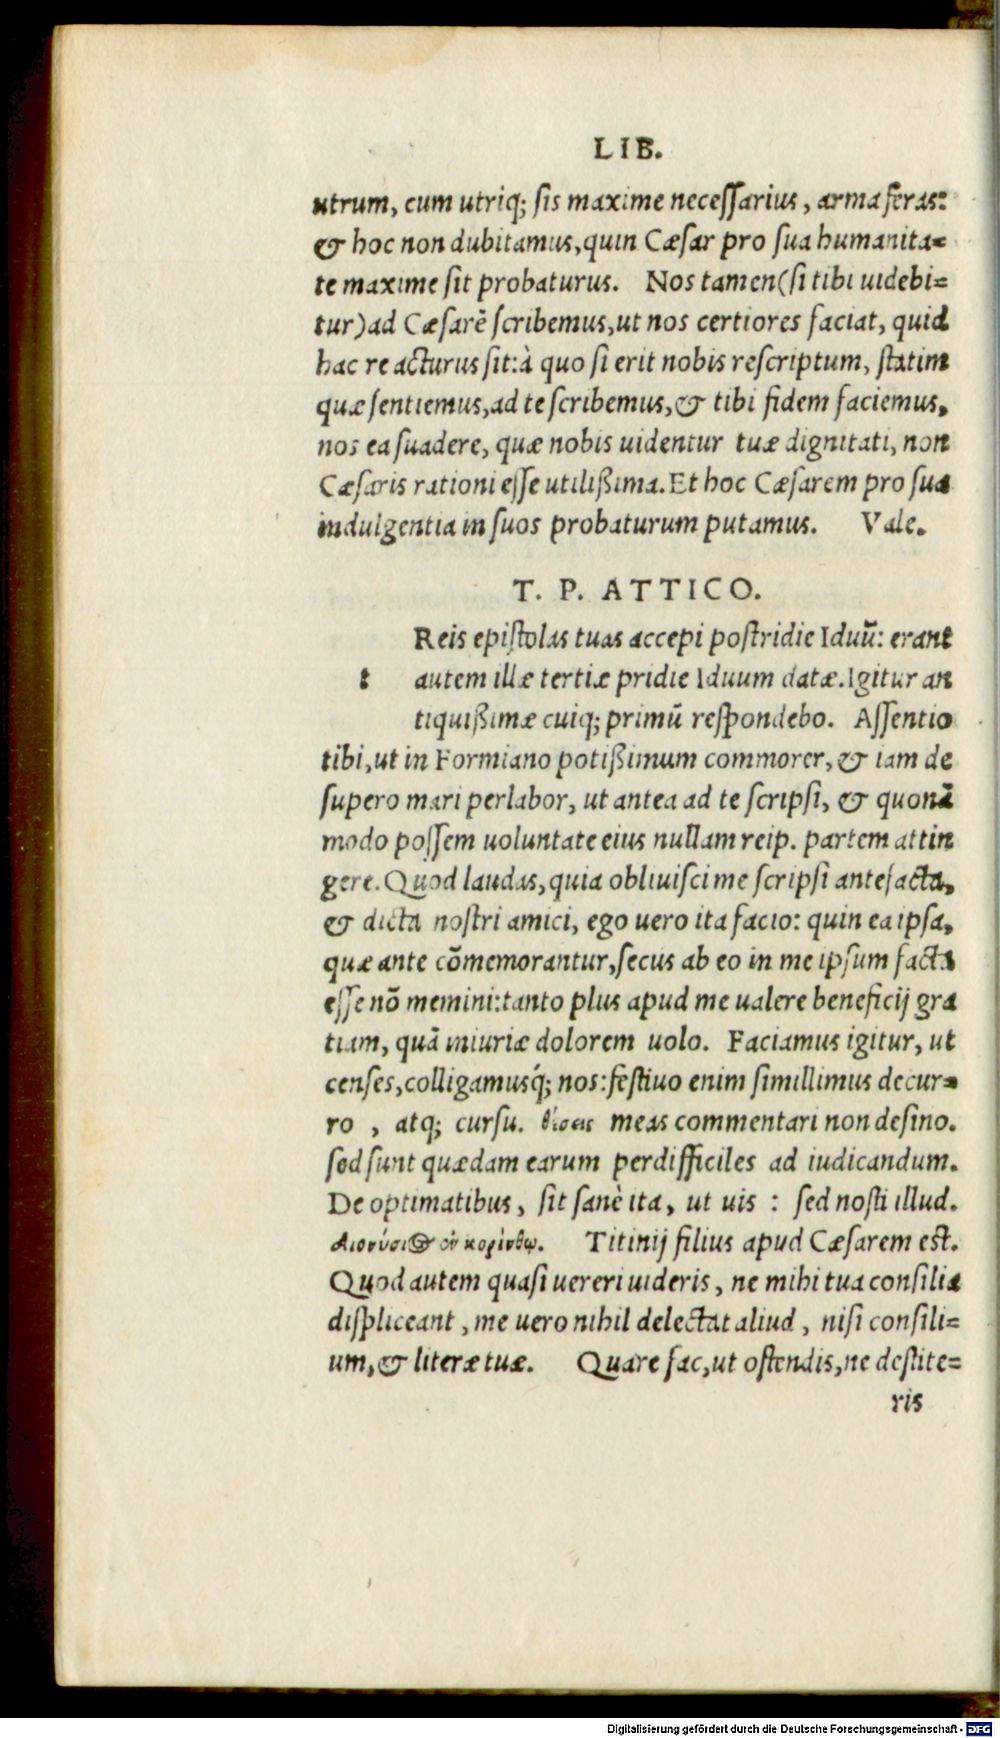 LIB.
utrum, cum utriq; sis maxime necessarius, arma feras:
& hoc non dubitamus, quin Cæsar pro sua humanita=
te maxime sit probaturus. Nos tamen (si tibi uidebi=
tur) ad Cæsarē scribemus, ut nos certiores faciat, quid
hac re acturus sit: à quo si erit nobis rescriptum, statim
quæ sentiemus, ad te scribemus, & tibi fidem faciemus,
nos ea suadere, quæ nobis uidentur tuæ dignitati, non
Cæsaris rationi esse utilißima. Et hoc Cæsarem pro sua
indulgentia in suos probaturum putamus. Vale.
T. P. ATTICO.
Reis epistolas tuas accepi postridie Iduū: erant
t autem illæ tertiæ pridie Iduum datæ. Igitur an
tiquißimæ cuiq; primū respondebo. Assentio
tibi, ut in Formiano potißimum commorer, & iam de
supero mari perlabor, ut antea ad te scripsi, & quonā
modo possem uoluntate eius nullam reip. partem attin
gere. Quod laudas, quia obliuisci me scripsi antefacta,
& dicta nostri amici, ego uero ita facio: quin ea ipsa,
quæ ante cōmemorantur, secus ab eo in me ipsum facta
esse nō memini: tanto plus apud me ualere beneficij gra
tiam, quā iniuriæ dolorem uolo. Faciamus igitur, ut
censes, colligamusq́; nos: festiuo enim simillimus decur=
ro , atq; cursu. θέσεις meas commentari non desino.
sed sunt quædam earum perdifficiles ad iudicandum.
De optimatibus, sit sanè ita, ut uis : sed nosti illud.
Διονύσιος ἐν κορίνθῳ. Titinij filius apud Cæsarem est.
Quod autem quasi uereri uideris, ne mihi tua consilia
displiceant, me uero nihil delectat aliud, nisi consili=
um, & literæ tuæ. Quare fac, ut ostendis, ne destite=
ris
Digitalisierung gefördert durch die Deutsche Forschungsgemeinschaft - DFG